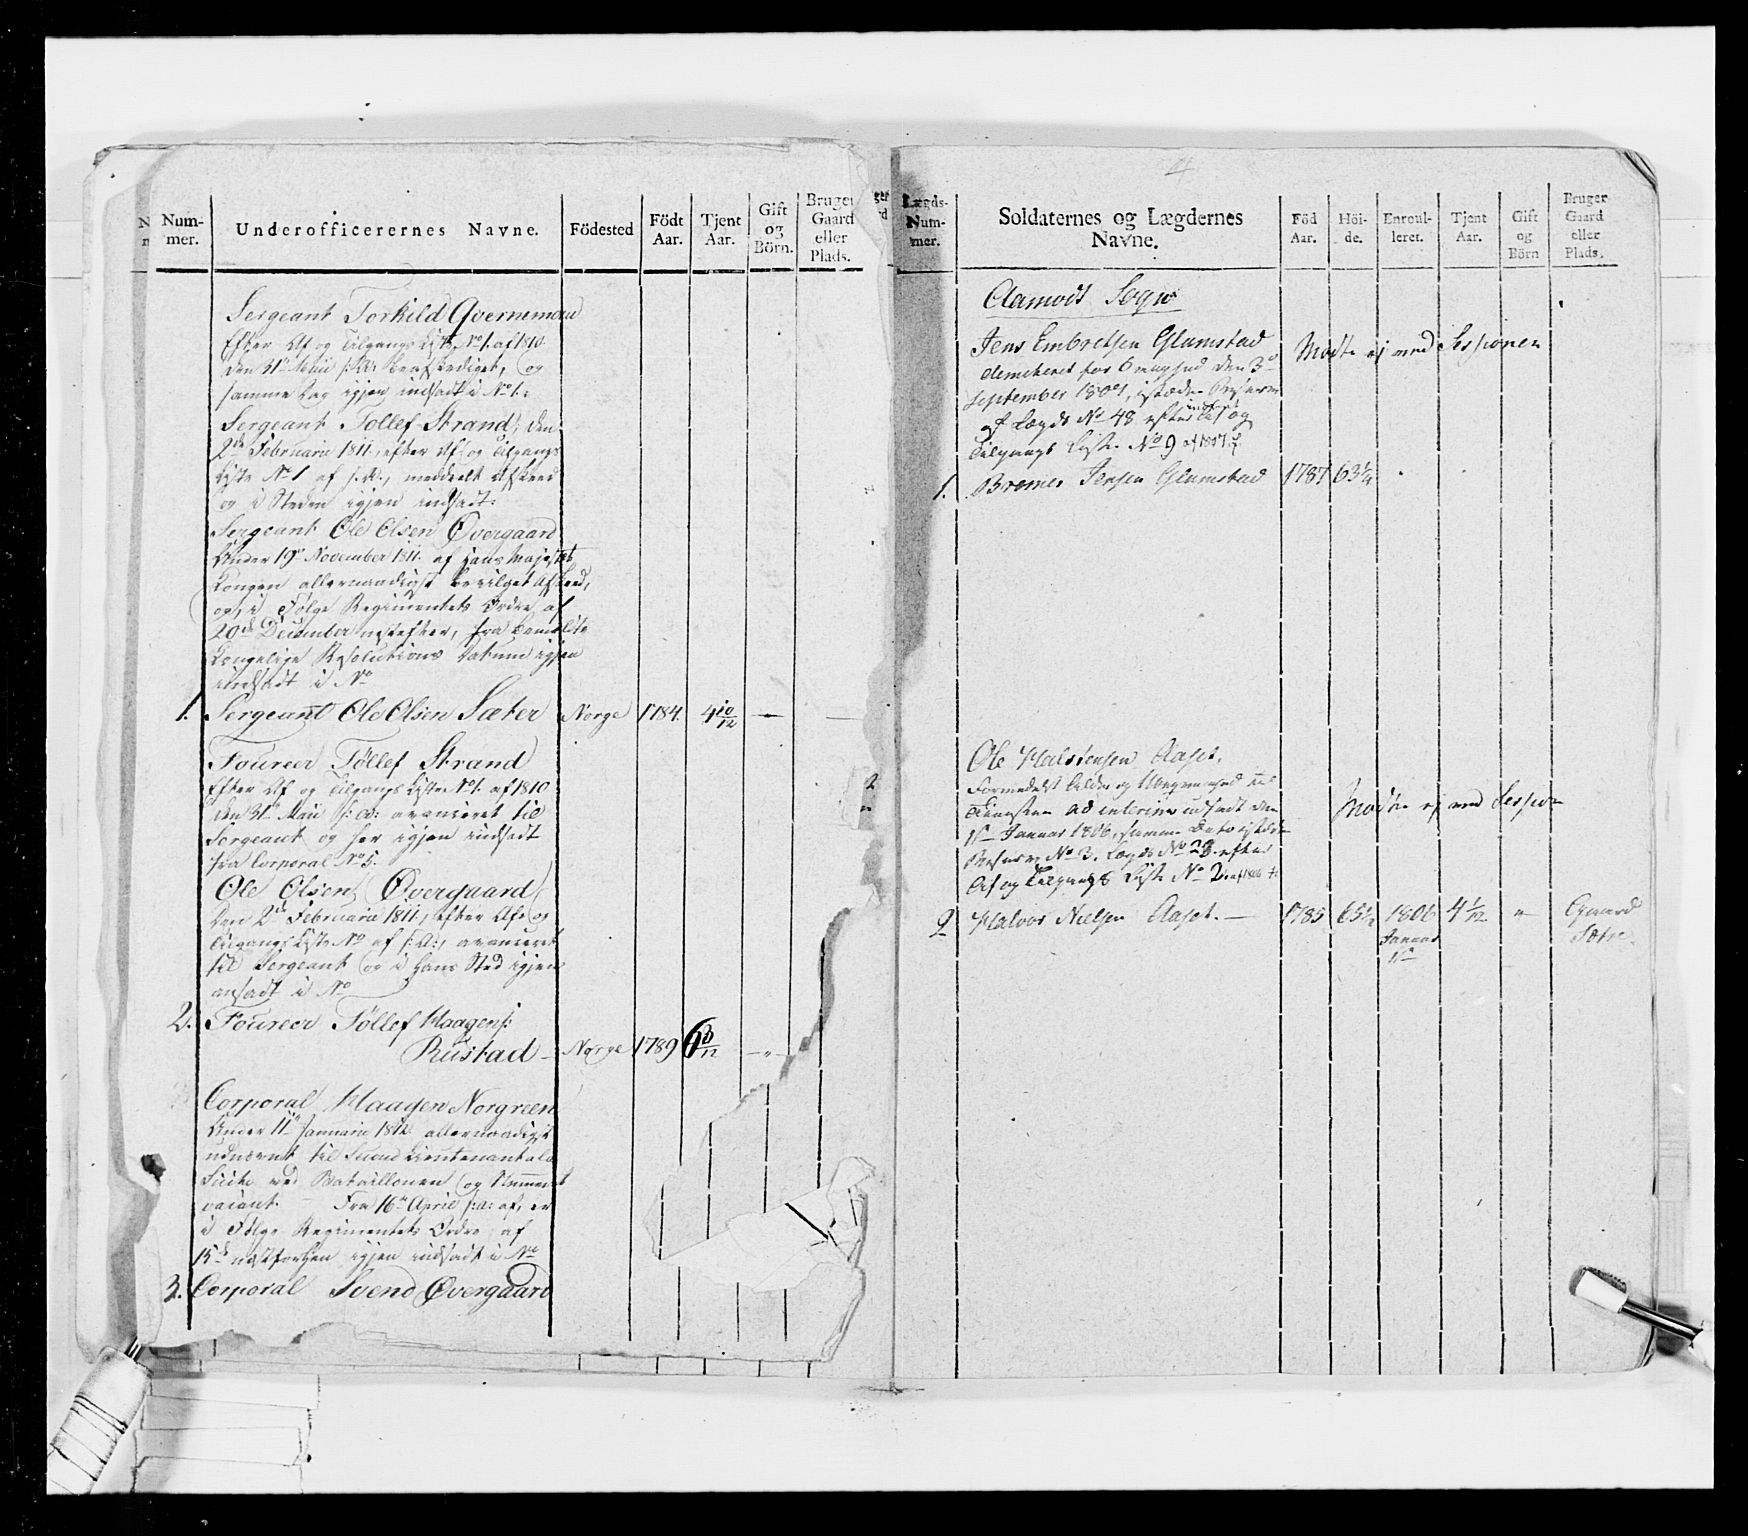 Num-
mer.
Underofficerernes Navne.
Födested
Födt
Aar.
Tjent
Aar.
Gift
og
Börn.
Bruger
Gaard
eller
Plads.
Sergeant Torkild Qvernemoen
Efter Af og Tilgangs Liste No 1. af 1810
den 31te Maii s: A: beafskediget, og
samme Dag igjen indsadt i No 1.
Sergeant Tollef Strand, den
2de Februarii 1811, efter Af og Tilgangs
Liste No 1 af s: A:, meddeelt Afskeed
og i Steden igjen indsadt.
Sergeant Ole Olsen Øvergaard
Under 19de November 1811. af Hans Majestæt
Kongen allernaadigst bevilget Afskeed,
og, i Følge Regimentets Ordre af
20de December nestefter, fra bemeldte
Kongelige Resolutions Datum igjen
indsadt i No
1. Sergeant Ole Olsen Sæter Norge 1784. 4 10/12 —
Foureer Tøllef Strand
Efter Af og Tilgangs Liste No 1. af 1810
den 31te Maii s: A: avanseret til
Sergeant og her igjen indsadt
fra Corporal No 5.
Ole Olsen Øvergaard
Den 2de Februarii 1811, efter Af og
Tilgangs Liste No af s: A:, avanceret
til Sergeant og i hans Sted igjen
ansadt i No
2. Foureer Tøllef Haagens:
Rustad — Norge 1789 6 3/12 — " —
Corporal Haagen Norgreen
Under 11te Januarii 1812 allernaadigst
udnævnt til Second Lieutenant ala
Suite ved Bataillonen og Nummeret
vacant. Fra 16de April s: A: af, er
i Følge Regimentets Ordre af
15de nestforhen igjen indsadt i No
3. Corporal Svend Øvergaard
Lægds-
Num-
mer.
Soldaternes og Lægdernes
Navne.
Föd
Aar.
Höi-
de.
Enroul-
leret.
Tjent
Aar.
Gift
og
Börn
Bruger
Gaard
eller
Plads.
Aamods Sogn
Jens Embretsen Glomstad
September 1809, istæden Reserven
af Lægds No 48 efter Af og
Tilgangs Liste No 9 af 1807.
Mødte ej ved Sessionen
1. Bremer Jensen Glomstad 1787 63 1/4
Ole Halvorsen Aaset.
Tienesten ad interim udsadt den
1te Januar 1806, samme Dato istæden
Reserve No 3. Lægds No 23. efter
Af og Tilgangs Liste No 2 af 1806
Mødte ej ved Session
2 Halvor Nielsen Aaset. — 1785 65 1/2 1806 4 1/12 " Gaard
Januar
1te
Sætre.